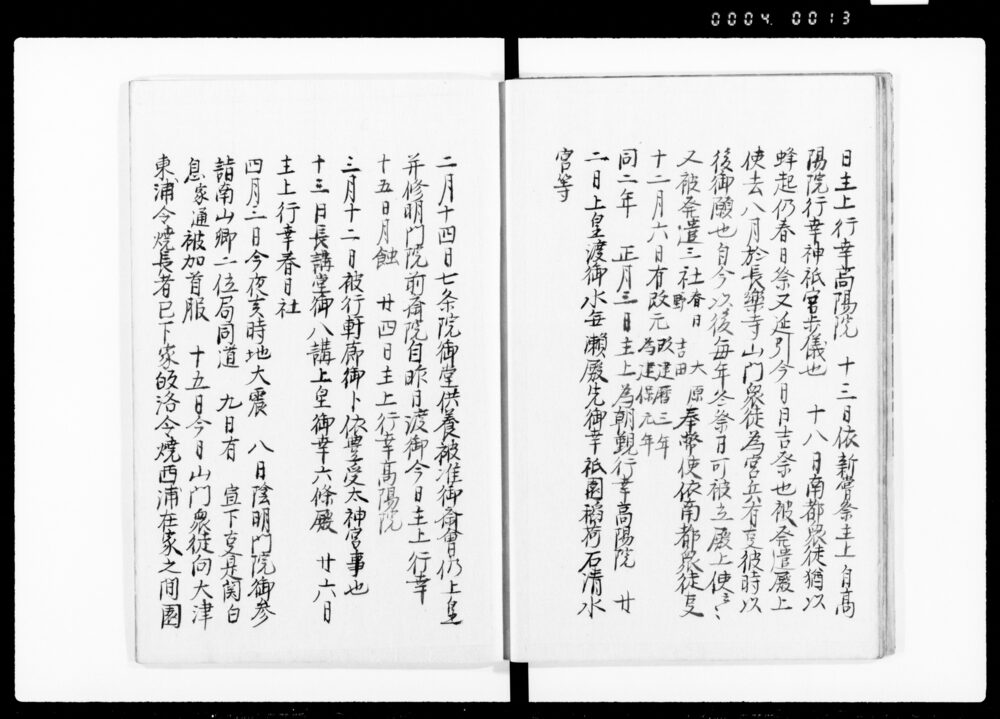 0004 0013
日主上行幸高陽院 十三日依新嘗祭主上自高
陽院行幸神祇官歩儀也 十八日南都衆徒猶以
蜂起仍春日祭又延引今日日吉祭也被発遣殿上
使去八月於長楽寺山門衆徒為官兵有夏彼時以
後御願也自今以後毎年冬祭日可被立殿上使云々
又被発遣三社春日 大原野 吉田奉幣使依南都衆徒夏
十二月六日有改元改建暦三年為建保元年
同二年 正月三日主上為朝覲行幸高陽院 廿
二日上皇渡御水無瀬殿先御幸祇園稲荷石清水
宮等
二月十四日七条院御堂供養被准御斎會仍上皇
并修明門院前斎院自昨日渡御今日主上行幸
十五日月蝕 廿四日主上行幸高陽院
三月十二日被行軒廊御卜依豊受太神宮事也
十三日長講堂御八講上皇御幸六條殿 廿六日
主上行幸春日社
四月三日今夜亥時地大震 八日陰明門院御参
詣南山卿二位局同道 九日有 宣下夏是関白
息家通被加首服 十五日今日山門衆徒向大津
東浦令焼長者已下家皈洛令焼西浦在家之間園